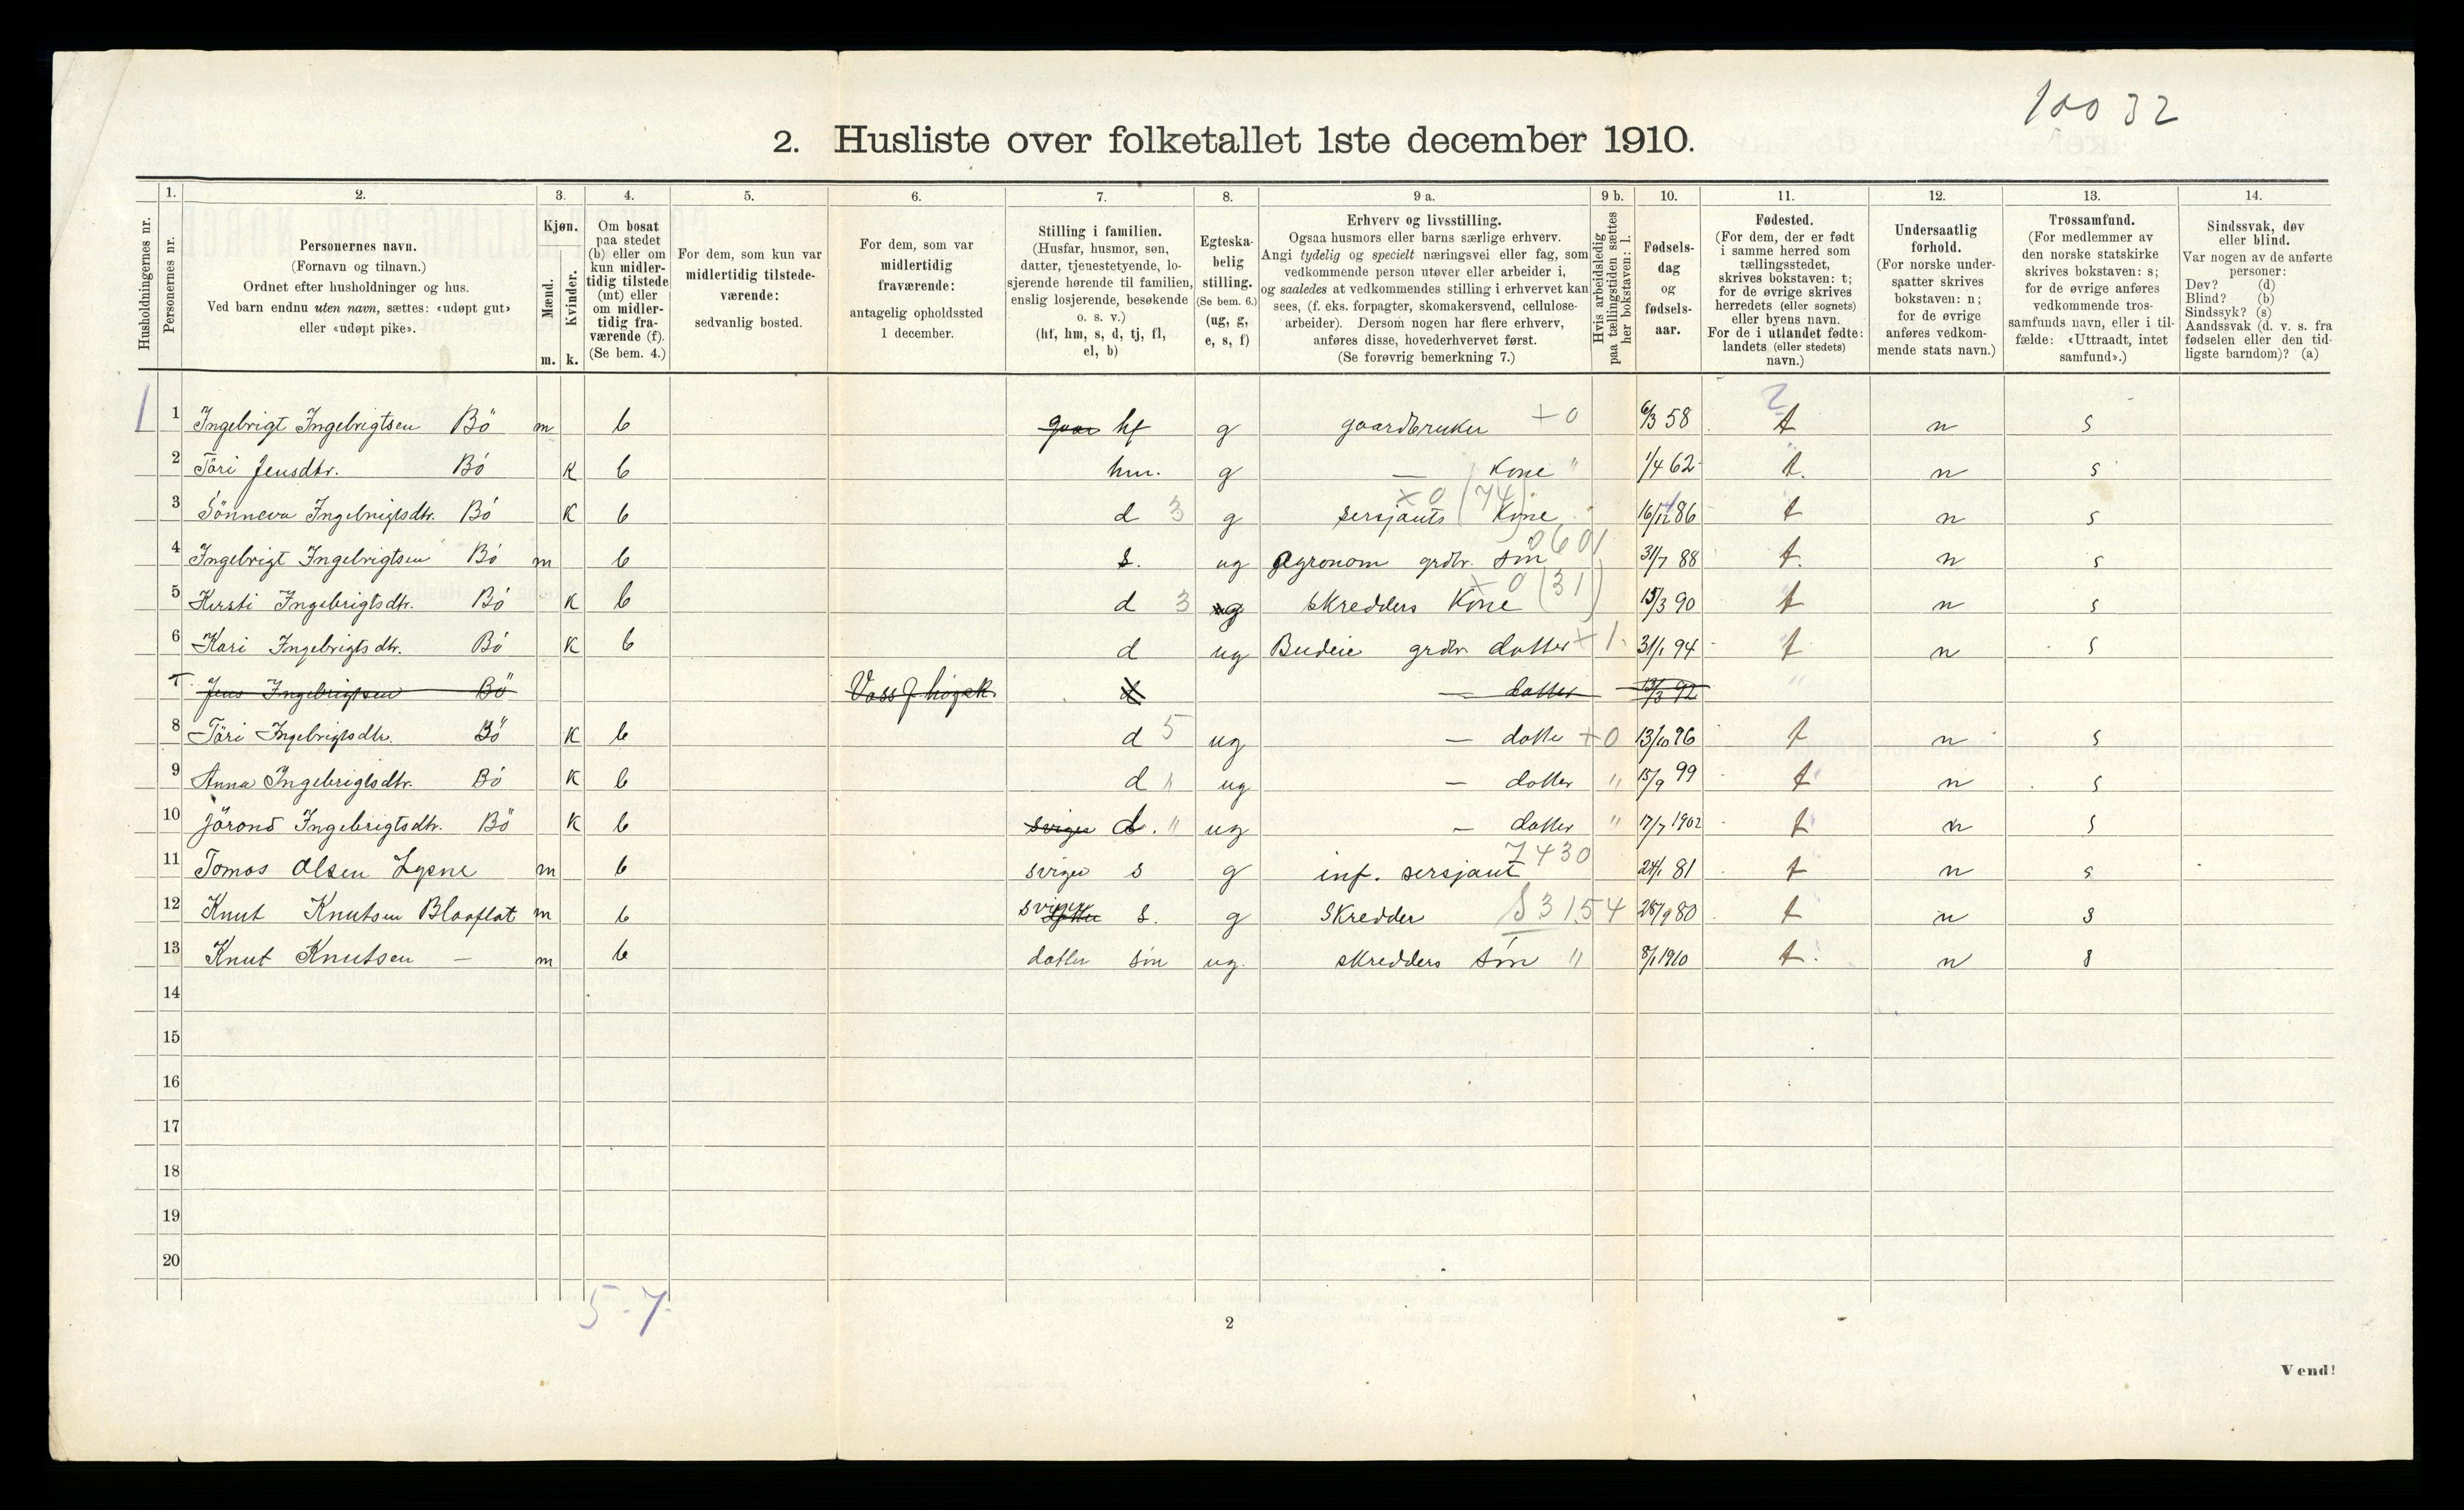 10032
2. Husliste over folketallet 1ste december 1910.
Husholdningernes nr.
1. Personernes nr.
2. Personernes navn.
(Fornavn og tilnavn.)
Ordnet efter husholdninger og hus.
Ved barn endnu uten navn, sættes: «udøpt gut»
eller «udøpt pike».
3. Kjøn.
Mænd. m.
Kvinder. k.
4. Om bosat
paa stedet
(b) eller om
kun midler-
tidig tilstede
(mt) eller
om midler-
tidig fra-
værende (f).
(Se bem. 4.)
5. For dem, som kun var
midlertidig tilstede-
værende:
sedvanlig bosted.
6. For dem, som var
midlertidig
fraværende:
antagelig opholdssted
1 december.
7. Stilling i familien.
(Husfar, husmor, søn,
datter, tjenestetyende, lo-
sjerende hørende til familien,
enslig losjerende, besøkende
o. s. v.)
(hf, hm, s, d, tj, fl,
el, b)
8. Egteska-
belig
stilling.
(Se bem. 6.)
(ug, g,
e, s, f)
9 a. Erhverv og livsstilling.
Ogsaa husmors eller barns særlige erhverv.
Angi tydelig og specielt næringsvei eller fag, som
vedkommende person utøver eller arbeider i,
og saaledes at vedkommendes stilling i erhvervet kan
sees, (f. eks. forpagter, skomakersvend, cellulose-
arbeider). Dersom nogen har flere erhverv,
anføres disse, hovederhvervet først.
(Se forøvrig bemerkning 7.)
9 b. Hvis arbeidsledig
paa tællingstiden sættes
her bokstaven: l.
10. Fødsels-
dag
og
fødsels-
aar.
11. Fødested.
(For dem, der er født
i samme herred som
tællingsstedet,
skrives bokstaven: t;
for de øvrige skrives
herredets (eller sognets)
eller byens navn.
For de i utlandet fødte:
landets (eller stedets)
navn.)
12. Undersaatlig
forhold.
(For norske under-
saatter skrives
bokstaven: n;
for de øvrige
anføres vedkom-
mende stats navn.)
13. Trossamfund.
(For medlemmer av
den norske statskirke
skrives bokstaven: s;
for de øvrige anføres
vedkommende tros-
samfunds navn, eller i til-
fælde: «Uttraadt, intet
samfund».)
14. Sindssvak, døv
eller blind.
Var nogen av de anførte
personer:
Døv? (d)
Blind? (b)
Sindssyk? (s)
Aandssvak (d. v. s. fra
fødselen eller den tid-
ligste barndom)? (a)
1 1 Ingebrigt Ingebrigtsen Bö m b hf g gaardbruker + 0 6/3 58 t n s
2 Töri Jensdtr. Bö K b hm. g — Kone " 1/4 62 t. n s
3 Sönneva Ingebrigtsdtr. Bö K b d 3 g sersjants Kone x 0 (74) 16/12 86 t n s
4 Ingebrigt Ingebrigtsen Bö m b s. ug Agronom grdbr. sön 0601 31/7 88 t. n s
5 Kersti Ingebrigtsdtr. Bö K b d 3 g skredders Kone x 0 (31) 15/3 90 t n s
6 Kari Ingebrigtsdtr. Bö K b d ug Budeie grdbr datter x 1 31/1 94 t n s
7 Jens Ingebrigtsen Bö Voss f högsk. d — datter 13/3 92
8 Töri Ingebrigtsdtr. Bö K b d 5 ug — datter + 0 13/10 96 t n s
9 Anna Ingebrigtsdtr. Bö K b d " ug — datter " 15/9 99 t n s
10 Jörond Ingebrigtsdtr. Bö K b sviger d. " ug — datter " 17/7 1902 t n s
11 Tomas Olsen Lysne m b sviger s g inf. sersjant 7430 24/1 81 t n s
12 Knut Knutsen Blaaflat m b sviger s. g Skredder S 3154 28/9 80 t n s
13 Knut Knutsen — m b datter sön ug. skredders sön " 8/1 1910 t. n s
14
15
16
17
18
19
20
5-7-
2
Vend!